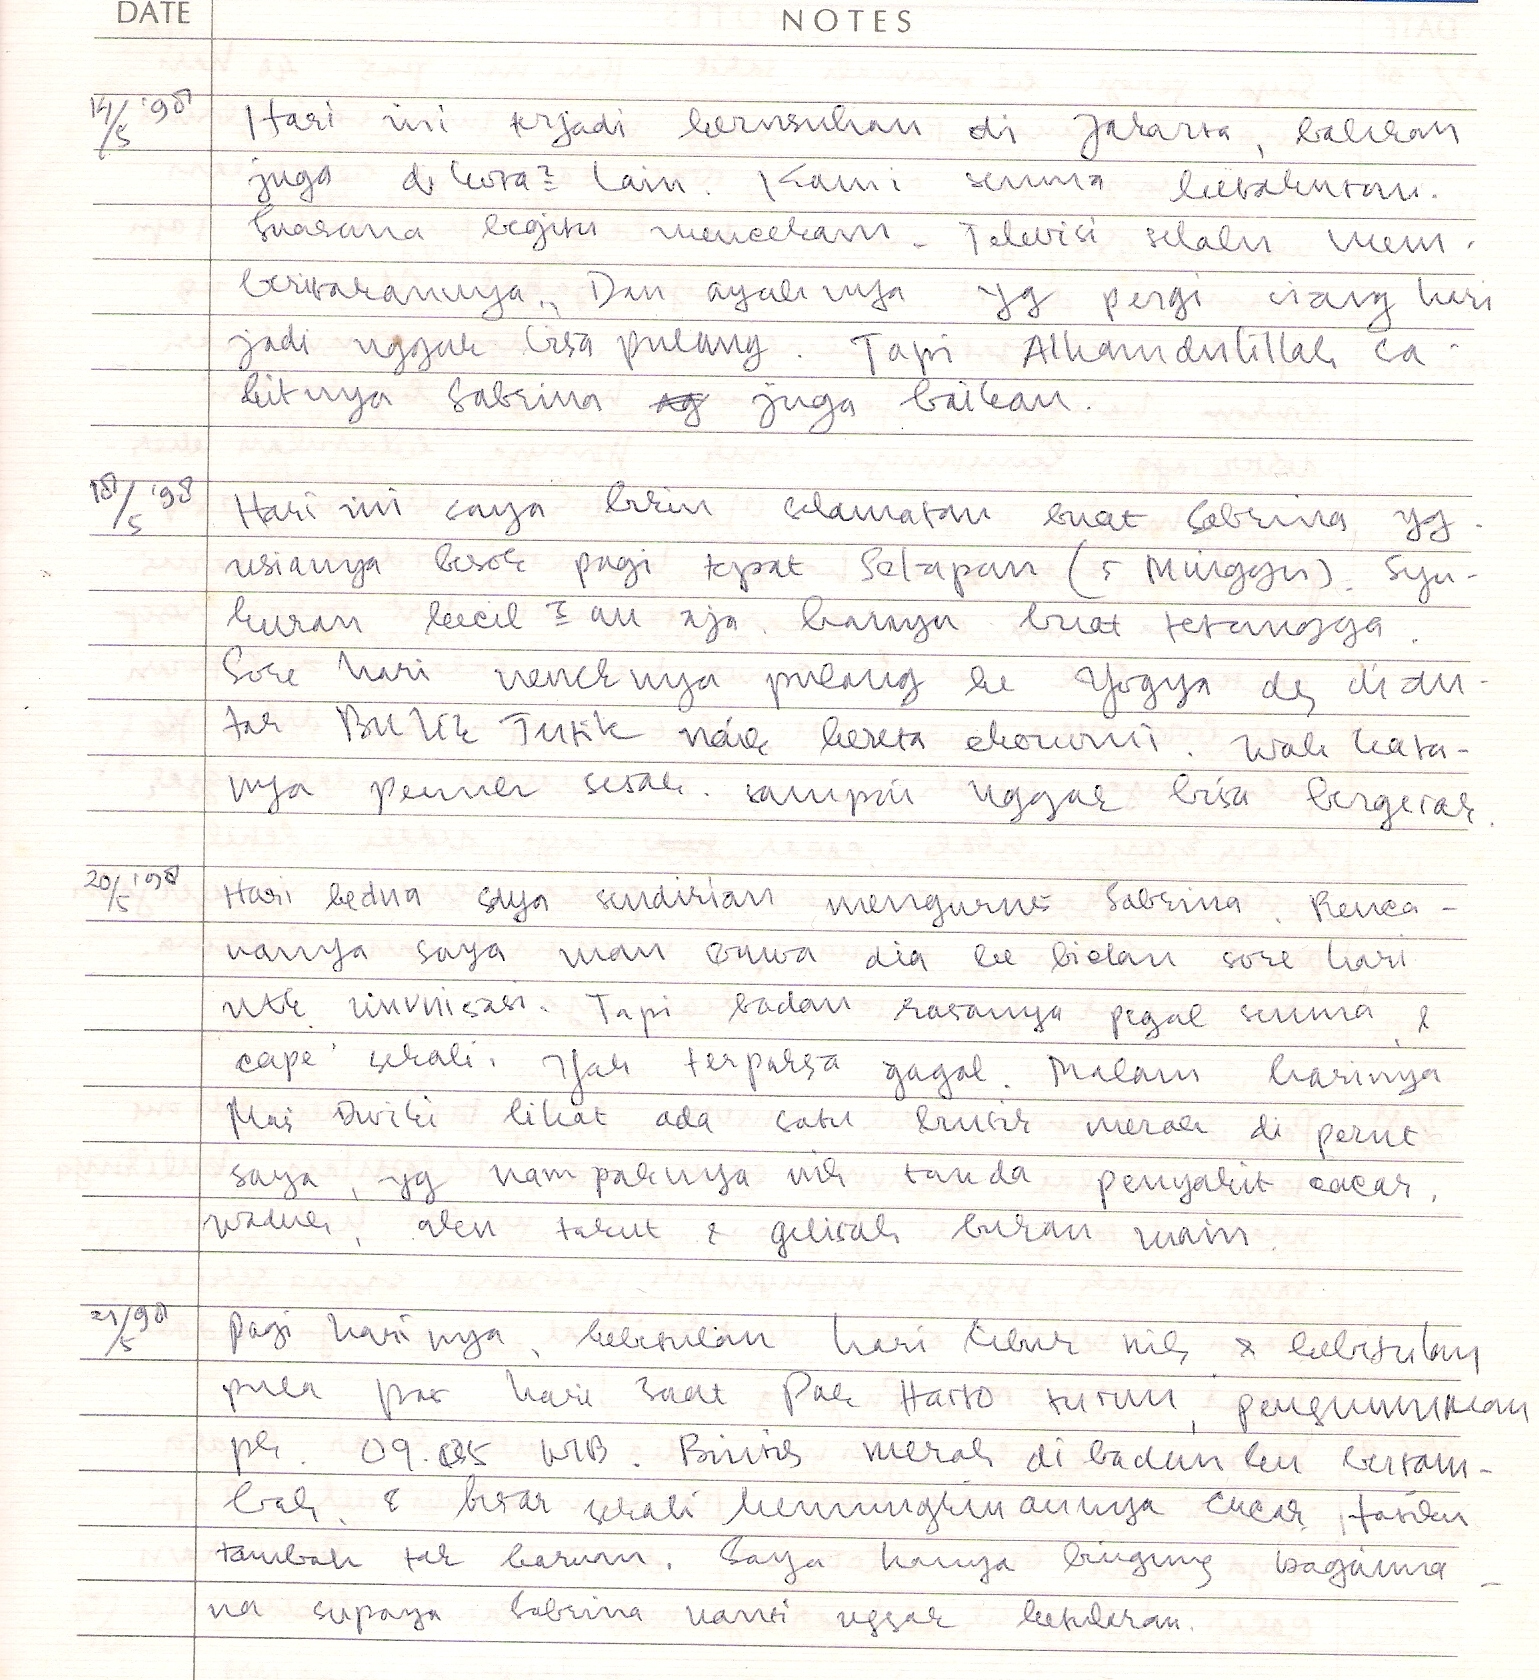 DATE NOTES
14/5 '98 Hari ini terjadi kerusuhan di Jakarta, bahkan
juga di kota2 lain. Kami semua ketakutan.
Suasana begitu mencekam. Televisi selalu mem-
beritakannya. Dan ayahnya yg pergi siang hari
jadi nggak bisa pulang. Tapi Alhamdulillah sa-
kitnya Sabrina juga baikan.
18/5 '98 Hari ini saya bikin selamatan buat Sabrina yg
usianya besok pagi tepat Selapan (5 Minggu). Syu-
kuran kecil2an aja. hanya buat tetangga.
Sore hari neneknya pulang ke Yogya dg dian-
tar Bulik Tutik naik kereta ekonomi. Wah kata-
nya penuh sesak. sampai nggak bisa bergerak.
20/5 '98 Hari kedua saya sendirian mengurus Sabrina. Renca-
nanya saya mau bawa dia ke bidan sore hari
utk imunisasi. Tapi badan rasanya pegal semua, &
cape' sekali. Yah terpaksa gagal. Malam harinya
Mas Dwiki lihat ada satu bintik merah di perut
saya, yg nampaknya nih tanda penyakit cacar.
Waduh, aku takut & gelisah bukan main.
21/5 98 Pagi harinya, kebetulan hari libur nih, & kebetulan
pula pas hari saat Pak Harto turun, pengumuman
pk. 09.05 WIB. Bintik merah di badanku bertam-
bah, & besar sekali kemungkinannya cacar,
tambah tak karuan. Saya hanya bingung bagaima-
na supaya Sabrina nanti nggak ketularan.